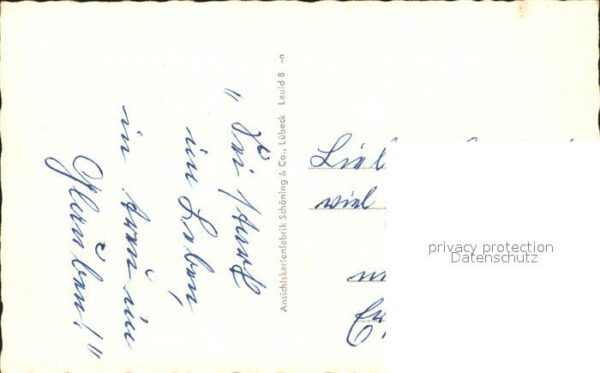 „Sei stark
im Leben,
in treu im
Glauben!"
Ansichtskartenfabrik Schöning & Co., Lübeck Lauid 8 -n
Lieb
viel
privacy protection
Datenschutz